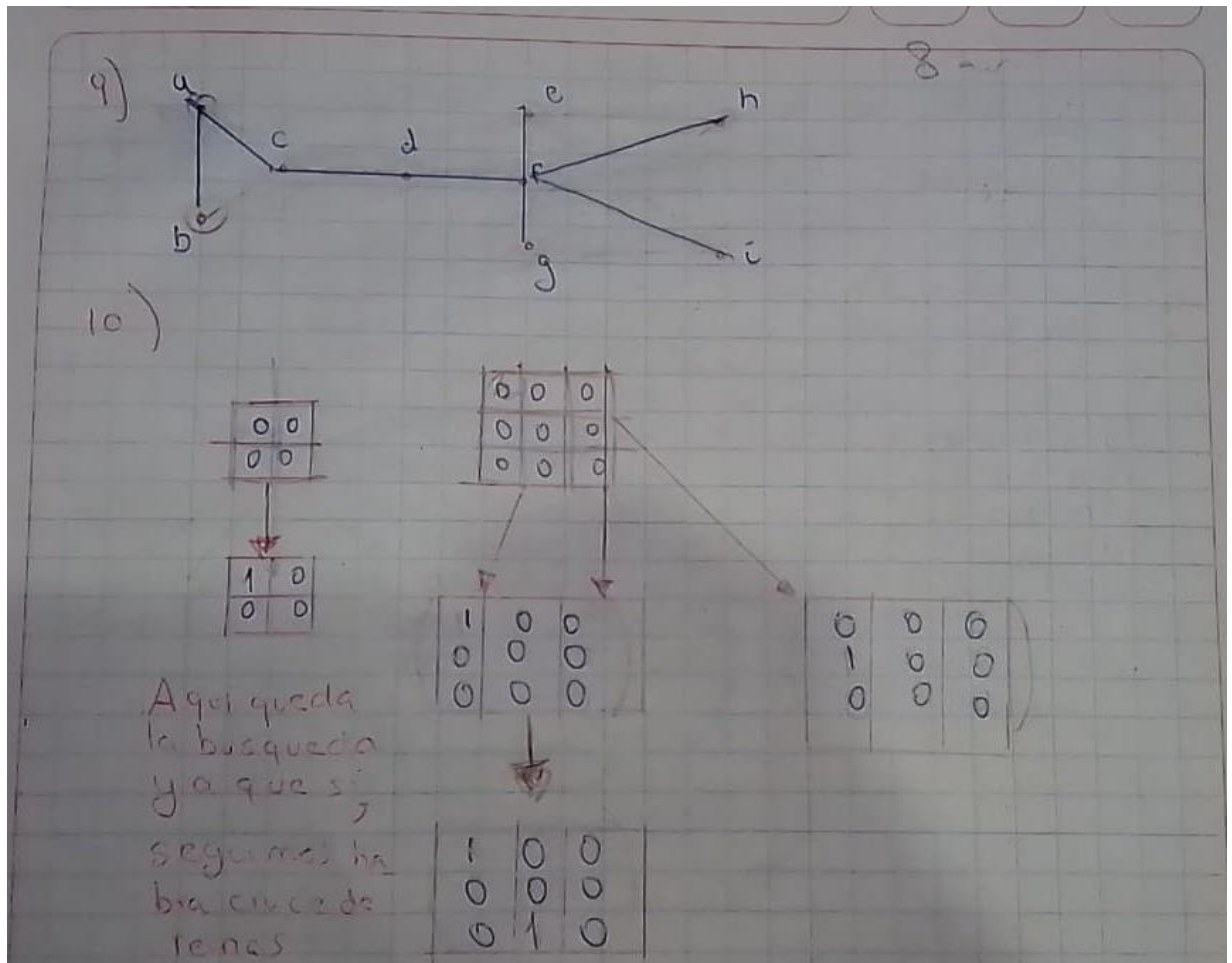 8
9)
a
e
h
c
d
f
b
g
i
10)
0 0
0 0
0 0 0
0 0 0
0 0 0
1 0
0 0
1 0 0
0 0 0
0 0 0
0 0 0
1 0 0
0 0 0
Aqui queda
la busqueda
ya que si
seguimos ha
bra
1 0 0
0 0 0
0 1 0